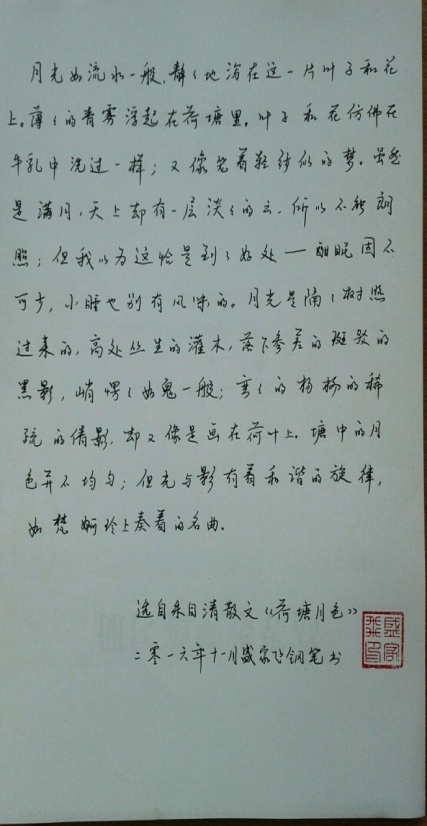 月光如流水一般,静〻地泻在这一片叶子和花
上。薄〻的青雾浮起在荷塘里。叶子和花仿佛在
牛乳中洗过一样;又像笼着轻纱似的梦。虽然
是满月,天上却有一层淡〻的云,所以不能朗
照;但我以为这恰是到了好处——酣眠固不
可少,小睡也别有风味的。月光是隔了树照
过来的,高处丛生的灌木,落下参差的斑驳的
黑影,峭愣〻如鬼一般;弯〻的杨柳的稀
疏的倩影,却又像是画在荷叶上。塘中的月
色并不均匀;但光与影有着和谐的旋律,
如梵婀玲上奏着的名曲。
选自朱自清散文《荷塘月色》
二零一六年十一月盛家飞钢笔书